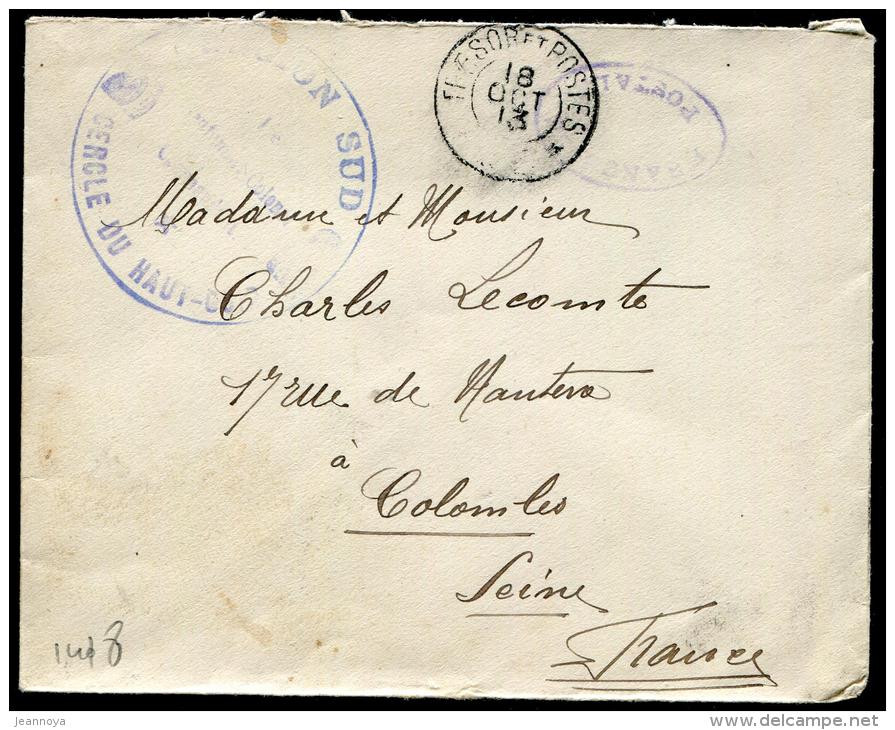 SUD
CERCLE DU HAUT-
Le
TRESOR ET POSTES
18
OCT
13
Madame et Monsieur
Charles Lecomte
17 rue de Nanterre
à
Colombes
Seine
France
8
jeannoya